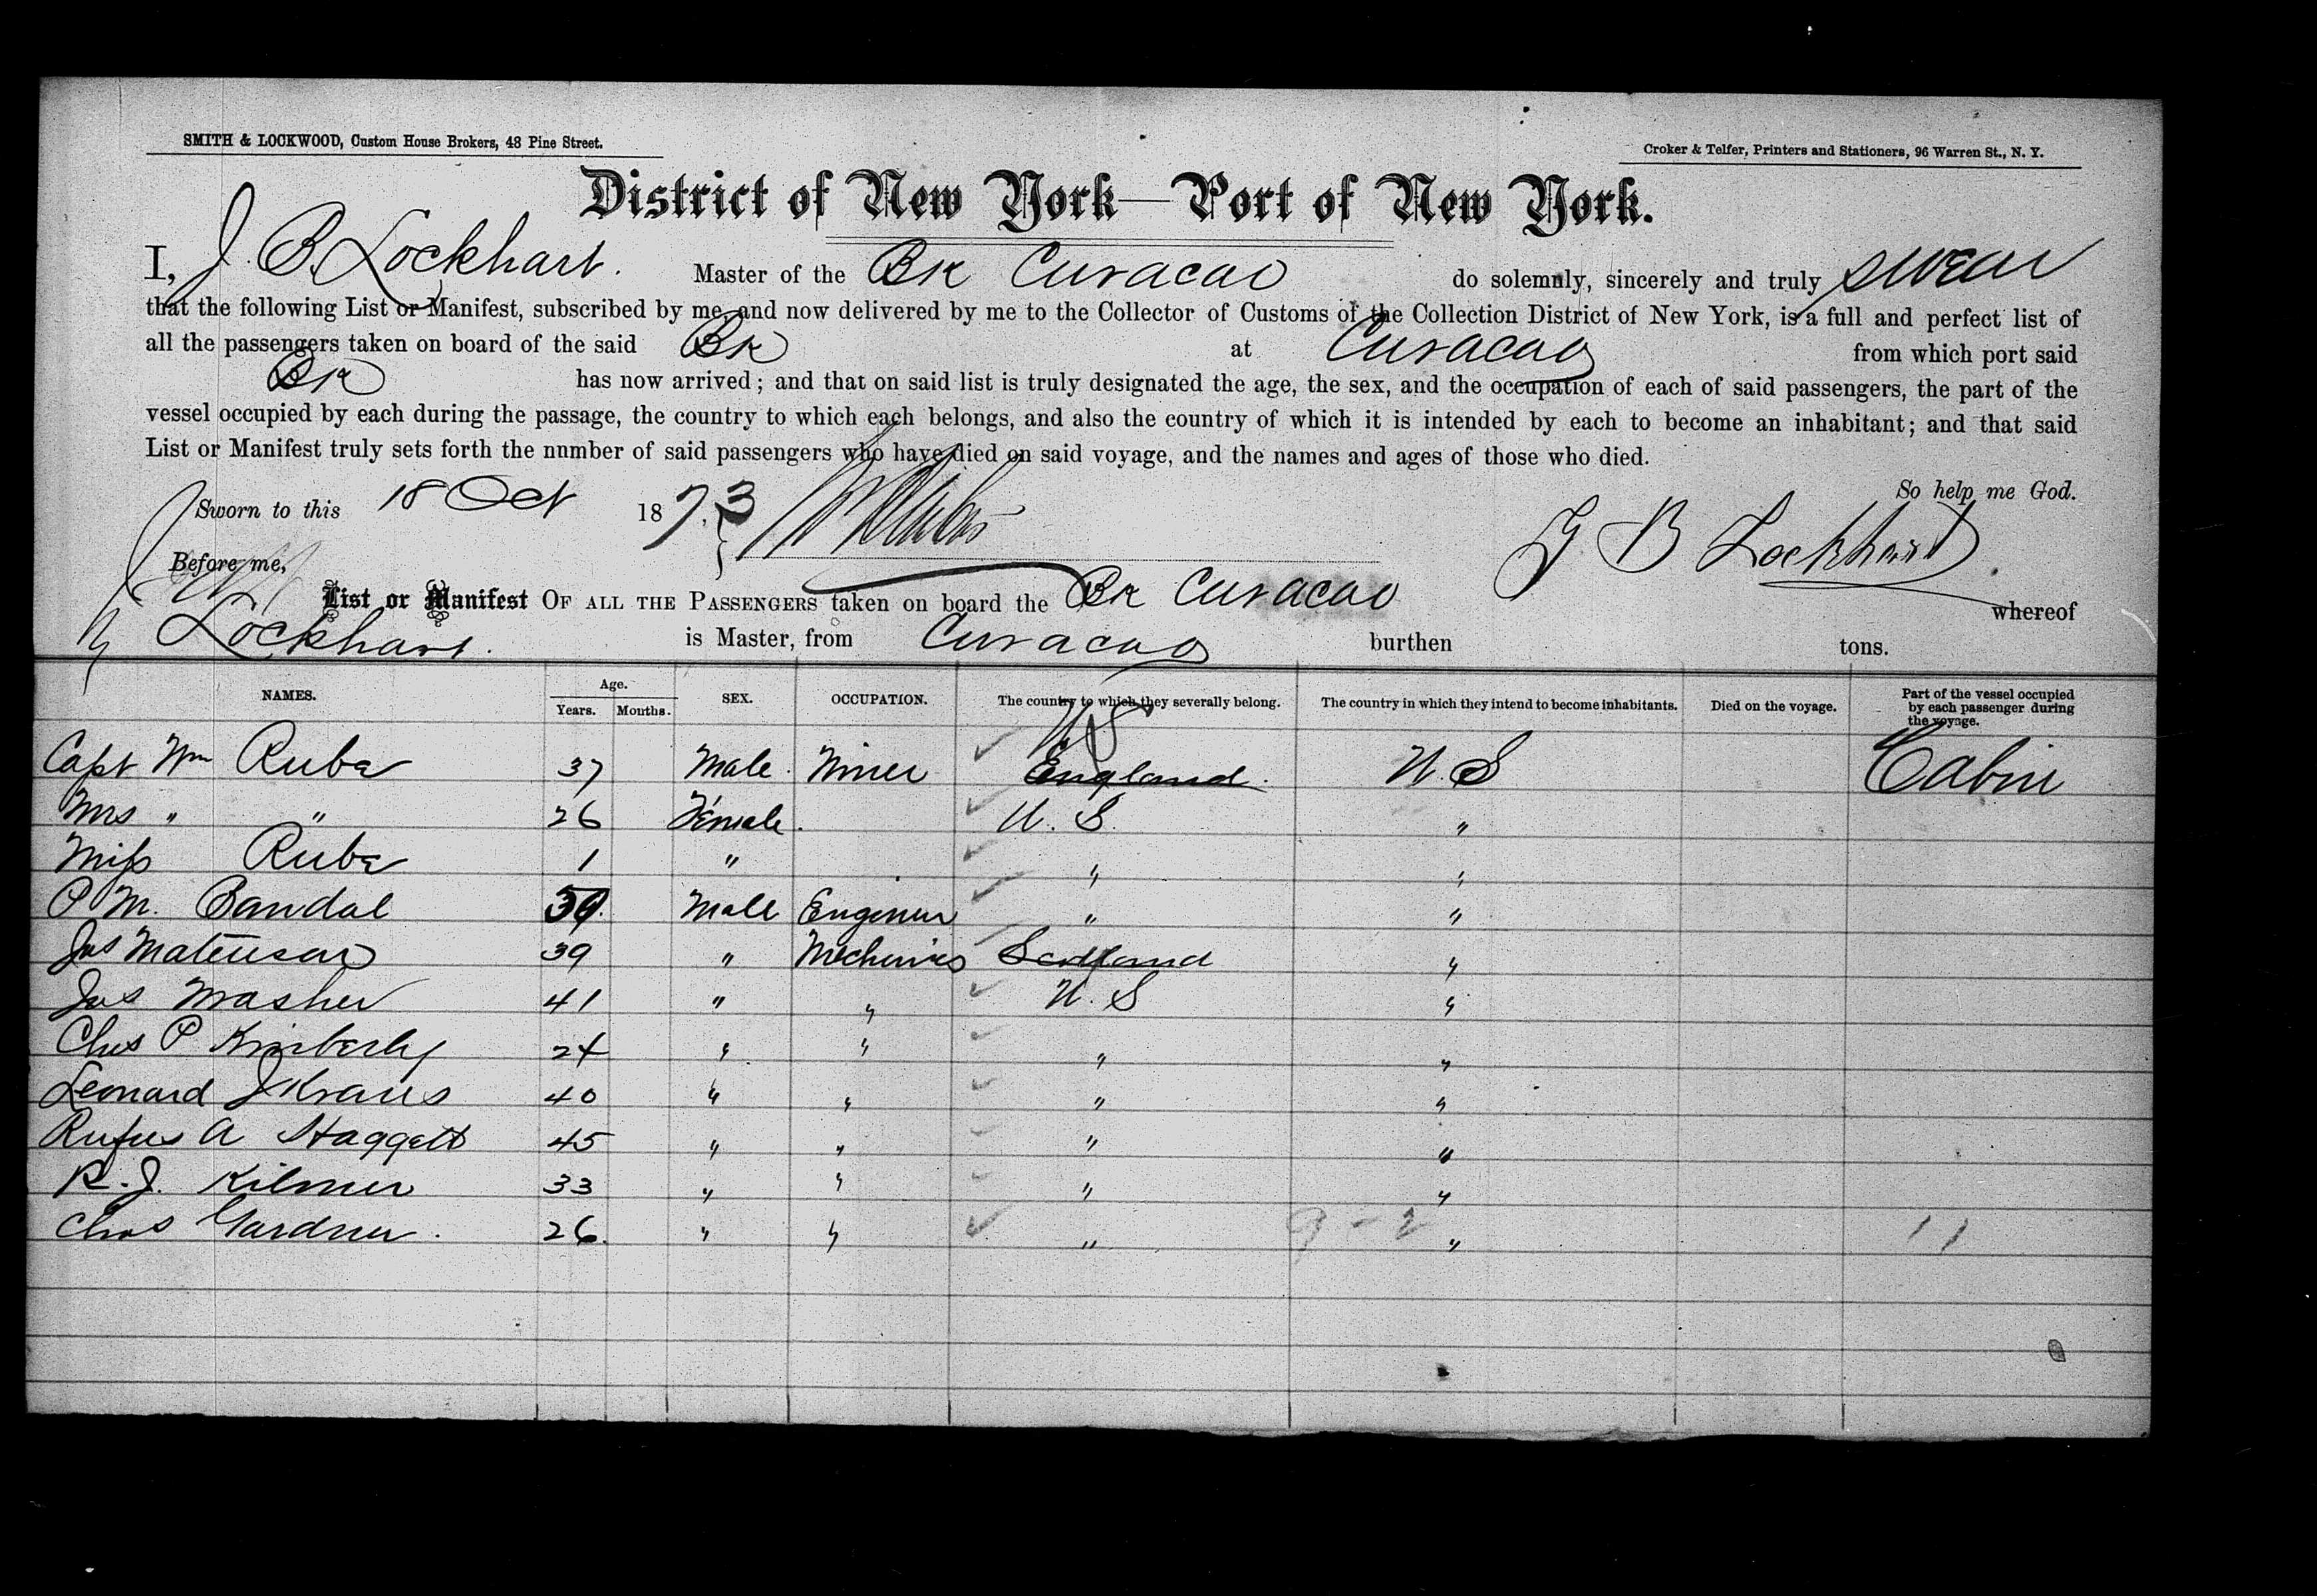 SMITH & LOCKWOOD, Custom House Brokers, 48 Pine Street.
Croker & Telfer, Printers and Stationers, 96 Warren St., N. Y.
District of New York—Port of New York.
I, J. B. Lockhart. Master of the Bk Curacao do solemnly, sincerely and truly swear
that the following List or Manifest, subscribed by me, and now delivered by me to the Collector of Customs of the Collection District of New York, is a full and perfect list of
all the passengers taken on board of the said Bk at Curacao from which port said
Bk has now arrived; and that on said list is truly designated the age, the sex, and the occupation of each of said passengers, the part of the
vessel occupied by each during the passage, the country to which each belongs, and also the country of which it is intended by each to become an inhabitant; and that said
List or Manifest truly sets forth the nnmber of said passengers who have died on said voyage, and the names and ages of those who died.
So help me God.
Sworn to this 18 Oct 1873
J B Lockhart
Before me,
List or Manifest OF ALL THE PASSENGERS taken on board the Bk Curacao whereof
Lockhart. is Master, from Curacao burthen tons.
NAMES. Age. Years. Mouths. SEX. OCCUPATION. The country to which they severally belong. The country in which they intend to become inhabitants. Died on the voyage. Part of the vessel occupied by each passenger during the voyage.
U S
Capt Wm Rube 37 Male Miner England U. S Cabin
Mrs " " 26 Female. U. S. "
Miss Rube 1 " " "
P M. Bandal 39 Male Engineer " "
Jas 39 " Mechanics Scotland "
Jas Mrasher 41 " " U. S "
Chas P Kimberly 24 " " " "
Leonard J Kraus 40 " " " "
Rufus A Haggett 45 " " " "
R. J. Kilmer 33 " " " "
Chas Gardner. 26. " " " 9 - 2 " 11